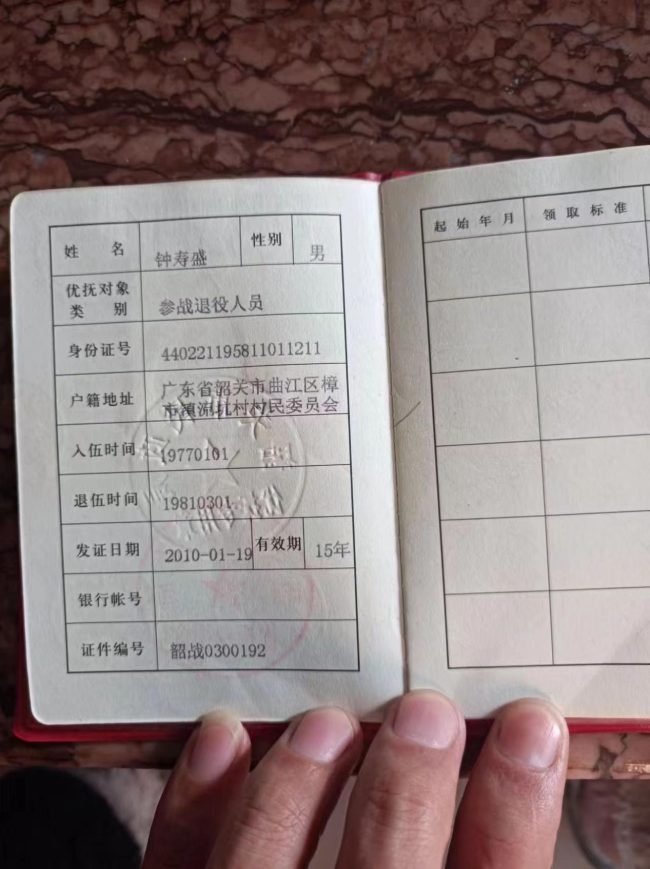 姓 名 钟寿盛 性别 男
优抚对象
类 别 参战退役人员
身份证号 440221195811011211
户籍地址 广东省韶关市曲江区樟
市镇流坑村村民委员会
入伍时间 19770101
退伍时间 19810301
发证日期 2010-01-19 有效期 15年
银行帐号
证件编号 韶战0300192
起始年月 领取标准